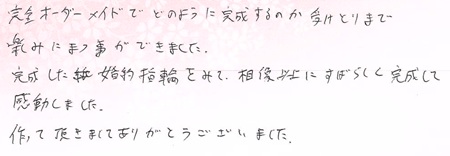 完全オーダーメイドでどのように完成するのか受けとりまで
楽みにまつ事ができました。
完成した婚約指輪をみて、想像以上にすばらしく完成して
感動しました。
作って頂きましてありがとうございました。